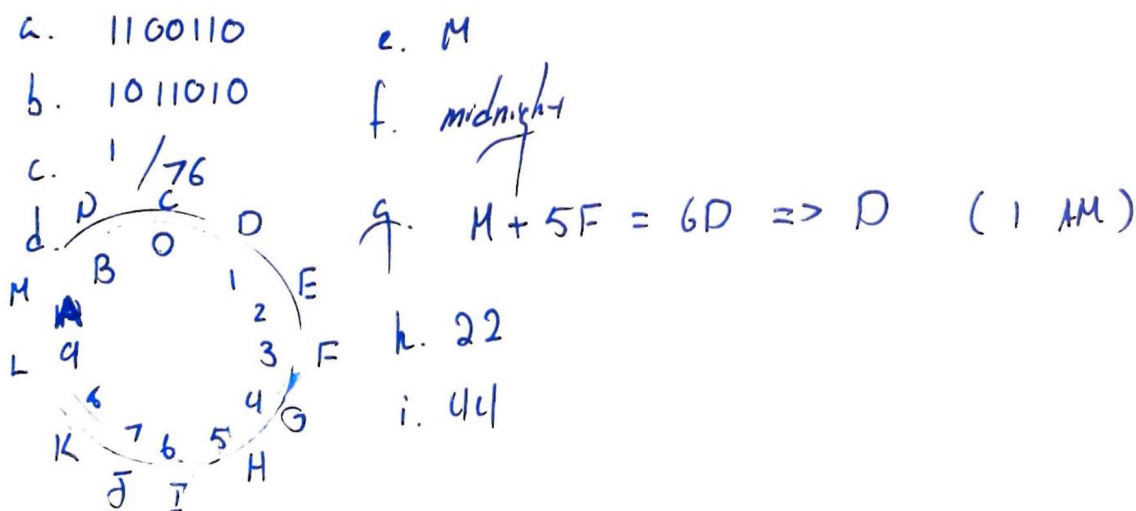 a. 1100110
b. 1011010
c. 1/76
d.
N C D E F G H I J K L M
0 1 2 3 4 5 6 7 8 9 A B
e. M
f. midnight
g. M + 5F = 6D => D (1 AM)
h. 22
i. 44